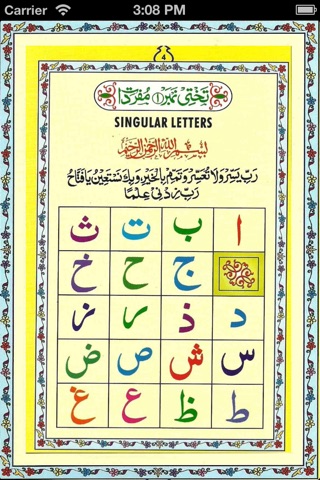 Carrier 3:08 PM
4
تختی نمبر ۱ مفردات
SINGULAR LETTERS
بِسْمِ اللهِ الرَّحْمٰنِ الرَّحِيْمِ
رَبِّ يَسِّرْ وَلَا تُعَسِّرْ وَتَمِّمْ بِالْخَيْرِ وَبِكَ نَسْتَعِيْنُ يَا فَتَّاحُ
رَبِّ زِدْنِيْ عِلْمًا
ا ب ت ث
ج ح خ
د ذ ر ز
س ش ص ض
ط ظ ع غ